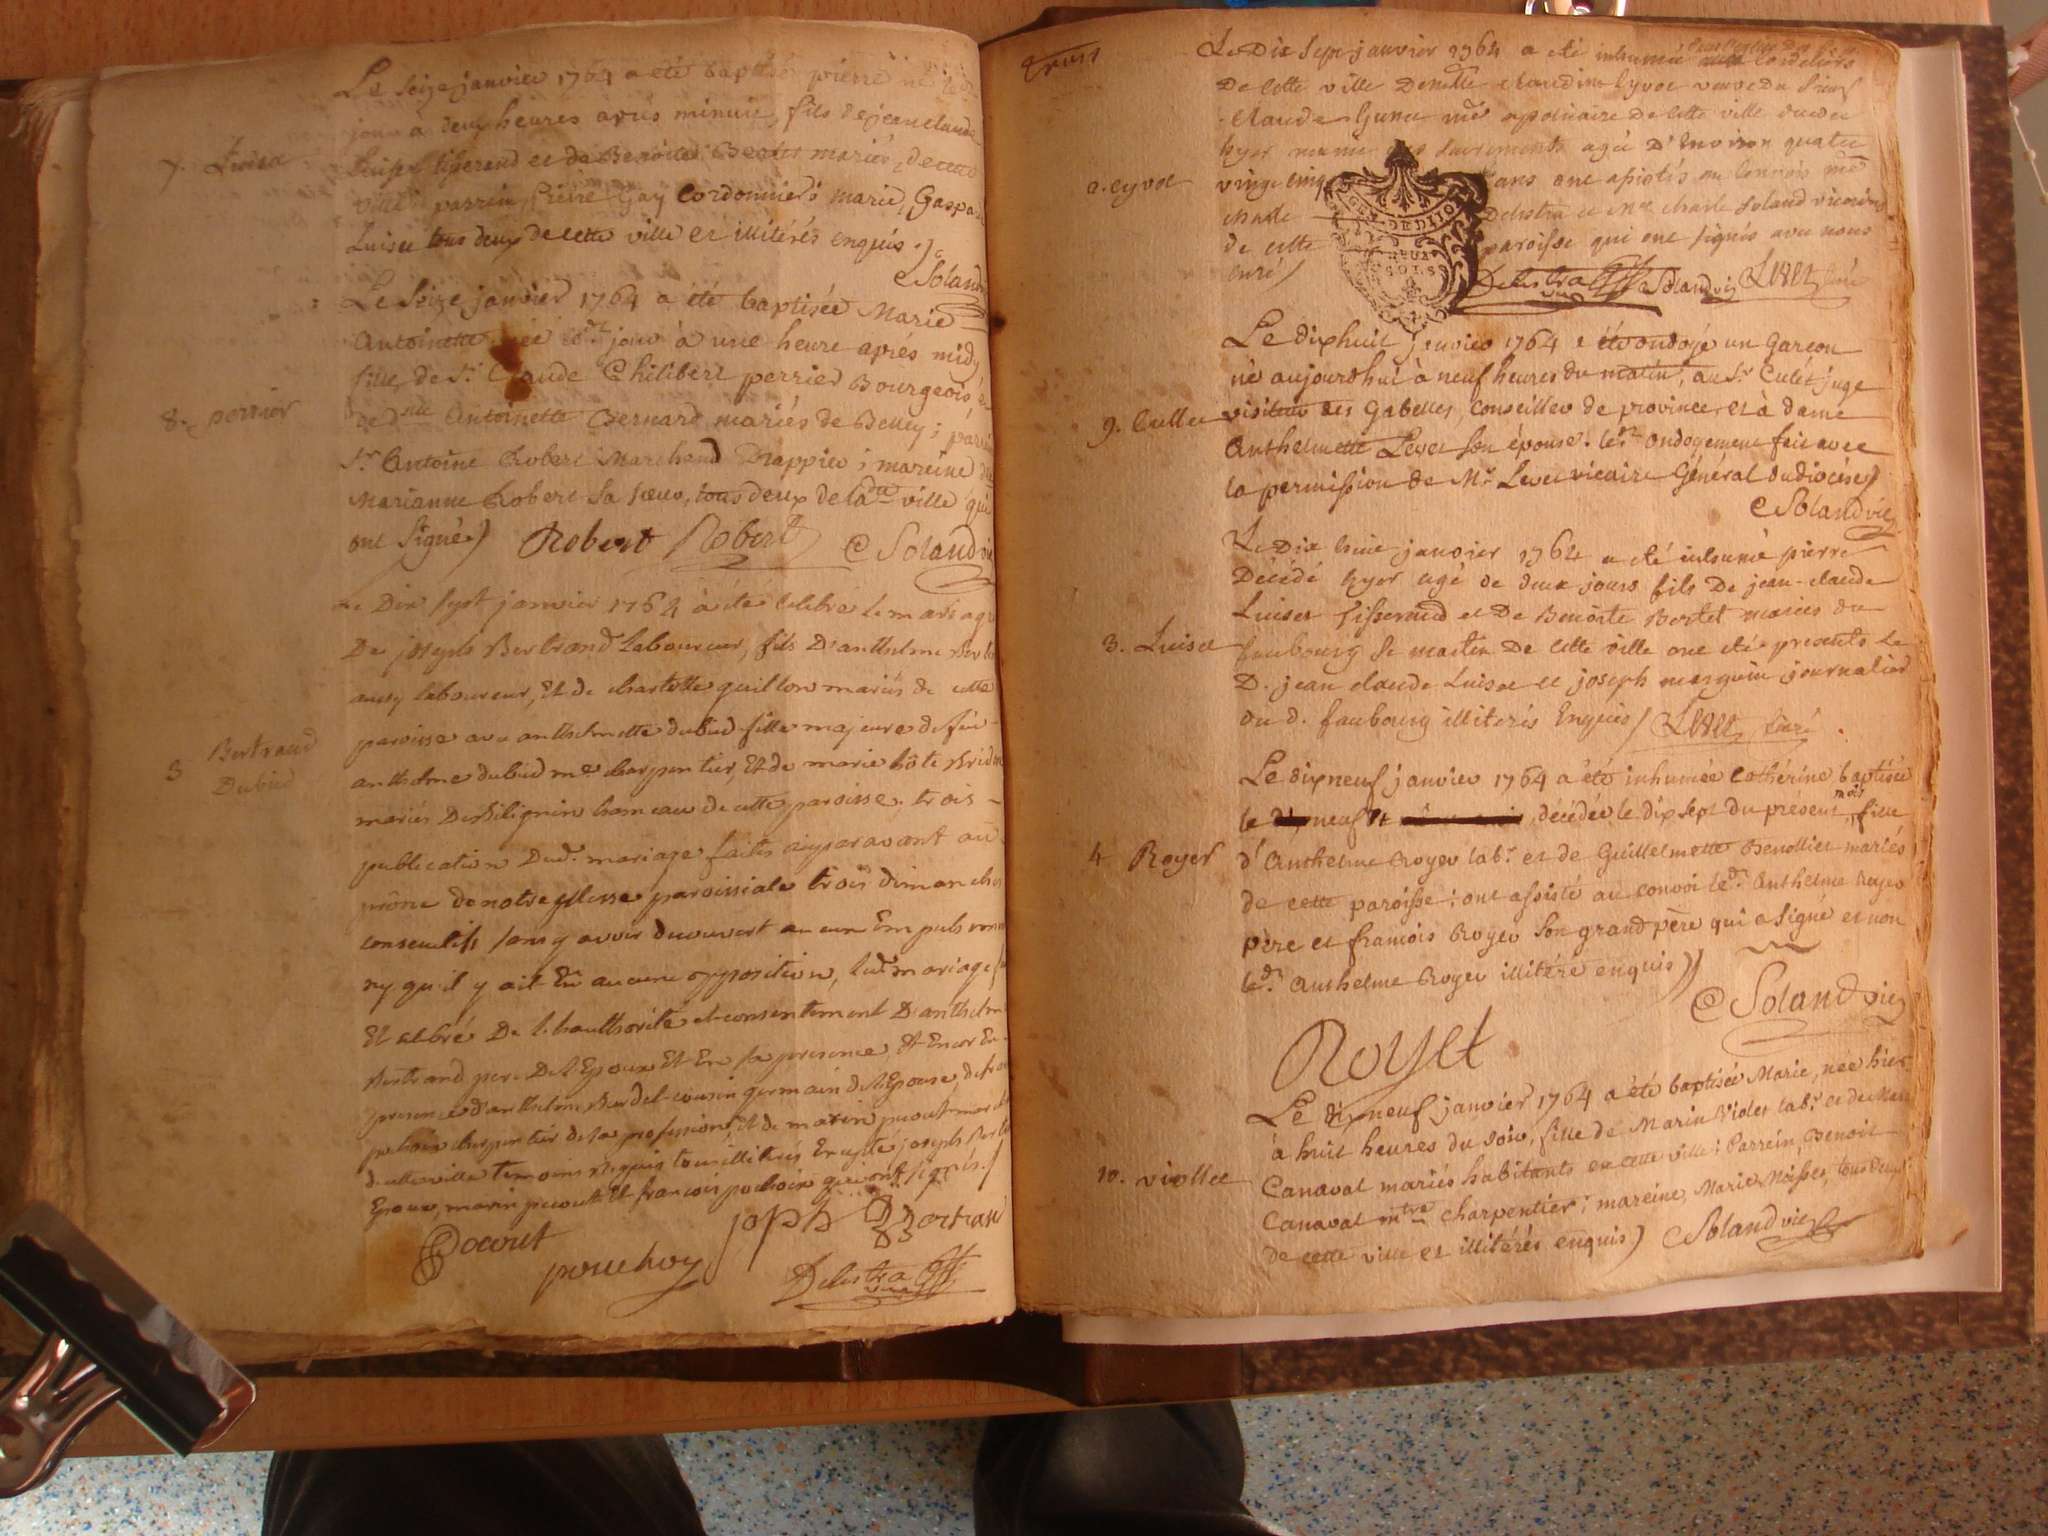 Le Seize janvier 1764 a été baptisé pierre né led.
jour à deux heures après minuit, fils de jean claude
7. Luiset
Luiset tisserend et de Benoite Bertet mariés, de cette
ville parrein, Pierre Gay cordonnier; marie, Gaspa
Luiset tous deux de cette ville et illitérés enquis./.
C Soland
Le Seize janvier 1764 a été baptisée Marie
Antoinette née led. jour à une heure après midy
fille de Sr. Claude Philibert perrier Bourgeois, et
8. perrier
de dlle Antoinette Bernard mariés de Belley; parrein
Sr. Antoine Robert Marchand Drappier; mareine dlle
Marianne Robert sa soeur, tous deux de lad. ville qui
ont signé) Robert Robert C Soland vic
Le Dix sept janvier 1764 à été célébré le mariage
De joseph Bertrand laboureur, fils D'anthelme Bertr
aussy laboureur, Et de charlotte quillon mariés de cette
3 Bertrand
Dubied
paroisse avec anthelmette dubied fille majeure de feu
anthelme dubied me charpentier, Et de marie
mariés De Bilignin hameau de cette paroisse, trois
publication Dud. mariage faites auparavant au
prône de notre Esglisse paroissiale trois dimanches
consecutifs sans y avoir decouvert aucun Empeschement
ny qu'il y ait Eu aucune opposition, led. mariage
Et celebré De l'hauthorité et consentement D'anthelme
Bertrand pere De l'Epoux Et En sa presence, Et Encor En
presence d'anthelme cousin germain de l'Epouse, de fran
charpentier de sa profession, Et de marin pecout
de cette ville temoins requis tous illiterés Excepté joseph Bert
Epoux, marin pecout Et françois pochoix qui ont signés./
Pocout pouchoy joph Bertran
Delestra
trois
Le Dix Sept janvier 1764 a eté inhumée dans l'eglise des Cordeliers
De cette ville Demlle claudine Cyvoc veuve du Sieur
claude me apoticaire de cette ville decedée
hyer munie des sacrements agée D'Environ quatre
2. cyvoc
vingt cinq ans ont assistés au convois me
charle Delestra et Mre charle Soland vicaires
de cette paroisse qui ont signés avec nous
curé/
GEN. DE DIJON
DEUX SOLS
Delestra C Soland vic Levet curé
Le dixhuit janvier 1764 a été ondoyé un Garcon
né aujourdhui à neuf heures du matin, au Sr. Culet juge
9. Cullet
visiteur des Gabelles, conseiller de province, et à dame
Anthelmette Levet son épouse. led. ondoyement fait avec
la permission de Mr. Levet vicaire Général du diocese/
C Soland vic
Le Dix huit janvier 1764 a eté inhumé pierre
Décédé hyer agé de deux jours fils De jean-claude
Luiset tisserand et De Benoite Bertet mariés du
3. Luiset
faubourg St martin De cette ville ont eté presents le
D. jean claude Luiset et joseph marguin journalier
du d. faubourg illiterés Enquis/ Levet curé
Le dix neuf janvier 1764 a été inhumée Cathérine baptisée
le neuf décédée le dix sept du présent mois, fille
4 Royer
d'Anthelme Royer labr. et de Guillelmette Benollier mariés
de cette paroisse; ont assisté au convoi led. Anthelme Royer
père et francois Royer son grand père qui a signé et non
led. Anthelme Royer illitéré enquis))
C Soland vic
Royet
Le dix neuf janvier 1764 a été baptisée Marie, née hier
à huit heures du soir, fille de Marin Violet labr. et de Marie
10. viollet
Canaval mariés habitants en cette ville; Parrein, Benoit
Canaval mtre charpentier; mareine, Marie tous deux
de cette ville et illitérés enquis) C Soland vic